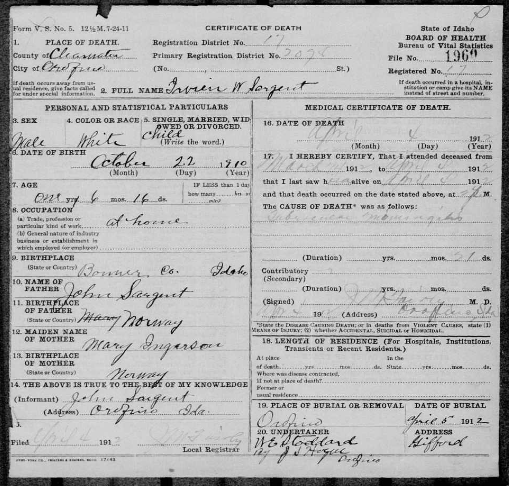 Form V. S. No. 5. 12½M.7-24-11
CERTIFICATE OF DEATH
State of Idaho
BOARD OF HEALTH
Bureau of Vital Statistics
1. PLACE OF DEATH.
County of Clearwater
City of Orofino
Registration District No.
Primary Registration District No.
(No. , St.)
File No. 1960
Registered No.
If death occurs away from usual residence, give facts called for under special information.
2. FULL NAME Irvien W. Sargent
If death occurred in a hospital, institution or camp give its NAME instead of street and number.
PERSONAL AND STATISTICAL PARTICULARS
3. SEX
Male
4. COLOR OR RACE
White
5. SINGLE, MARRIED, WIDOWED OR DIVORCED.
Child
(Write the word.)
6. DATE OF BIRTH
October 22 1910
(Month) (Day) (Year)
7. AGE
One yr 6 mos 16 ds.
IF LESS than 1 day how many hrs. or min?
8. OCCUPATION
(a) Trade, profession or particular kind of work. at home
(b) General nature of industry business or establishment in which employed (or employer)
9. BIRTHPLACE
(State or Country) Bonner Co. Idaho
10. NAME OF FATHER John Sargent
11. BIRTHPLACE OF FATHER
(State or Country) Mary Norway
12. MAIDEN NAME OF MOTHER Mary Ingerson
13. BIRTHPLACE OF MOTHER
(State or Country) Norway
14. THE ABOVE IS TRUE TO THE BEST OF MY KNOWLEDGE
(Informant) John Sargent
(Address) Orofino Ida.
Filed 191
Local Registrar
MEDICAL CERTIFICATE OF DEATH.
16. DATE OF DEATH
April 4 1912
(Month) (Day) (Year)
17. I HEREBY CERTIFY, That I attended deceased from
191 to 191
that I last saw h alive on 191
and that death occurred on the date stated above, at M.
The CAUSE OF DEATH* was as follows:
(Duration) yrs. mos. 21 ds.
Contributory
(Secondary)
(Duration) yrs. mos. ds.
(Signed) M. D.
19 (Address)
*State the Disease Causing Death; or in deaths from Violent Causes, state (1) Means of Injury; (2) whether Accidental, Suicidal or Homicidal.
18. LENGTH OF RESIDENCE (For Hospitals, Institutions, Transients or Recent Residents.)
At place of death yrs. mos. ds. In the State yrs. mos. ds.
Where was disease contracted.
If not at place of death?
Former or usual residence
19. PLACE OF BURIAL OR REMOVAL
Orofino
DATE OF BURIAL
April 5 1912
20. UNDERTAKER
ADDRESS
Gifford
Orofino